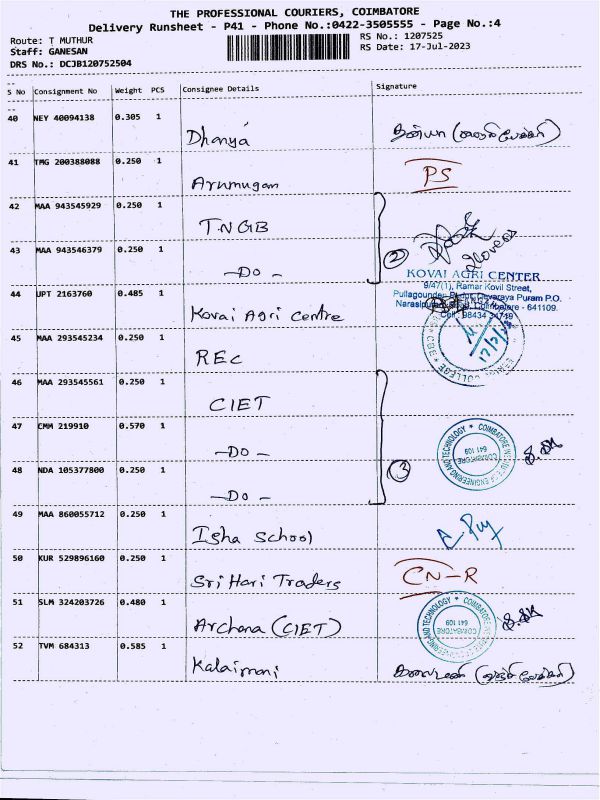 THE PROFESSIONAL COURIERS, COIMBATORE
Delivery Runsheet - P41 - Phone No.:0422-3505555 - Page No.:4
Route: T MUTHUR
RS No.: 1207525
Staff: GANESAN
RS Date: 17-Jul-2023
DRS No.: DCJB120752504
S No Consignment No Weight PCS Consignee Details Signature
40 NEY 40094138 0.305 1 Dhanya
41 TMG 200388088 0.250 1 Arumugam PS
42 MAA 943545929 0.250 1 TNGB
43 MAA 943546379 0.250 1 -Do- 2
KOVAI AGRI CENTER
9/47(1), Ramar Kovil Street,
44 UPT 2163760 0.485 1 Kovai Agri Centre
45 MAA 293545234 0.250 1 REC
46 MAA 293545561 0.250 1 CIET
47 CMM 219910 0.570 1 -Do-
48 NDA 105377800 0.250 1 -Do- 3
COIMBATORE INSTITUTE OF ENGINEERING AND TECHNOLOGY
COIMBATORE
641 109
49 MAA 860055712 0.250 1 Isha School
50 KUR 529896160 0.250 1 Sri Hari Traders CN-R
51 SLM 324203726 0.480 1 Archana (CIET)
COIMBATORE INSTITUTE OF ENGINEERING AND TECHNOLOGY
COIMBATORE
641 109
52 TVM 684313 0.585 1 Kalaimani